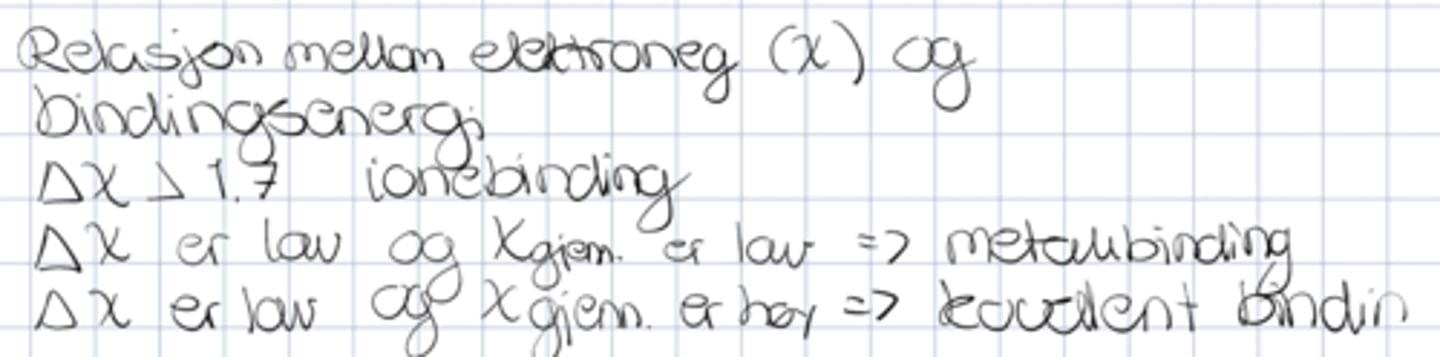 Relasjon mellom elektroneg (x) og
bindingsenergi
Δx > 1.7 ionebinding
Δx er lav og xgjem. er lav => metallbinding
Δx er lav og xgjem. er høy => kovalent bindin